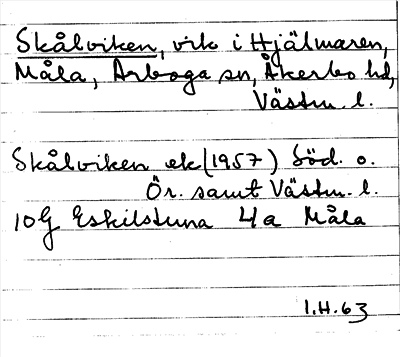 Skålviken, vik i Hjälmaren,
Måla, Arboga sn, Åkerbo hd,
Västm. l.
Skålviken ek (1957) Söd. o.
Ör. samt Västm. l.
10G Eskilstuna 4a Måla
I.H. 63